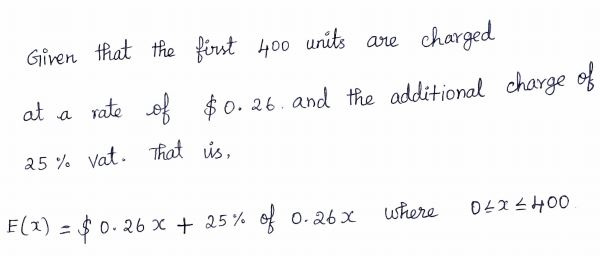 Given that the first 400 units are charged
at a rate of $0.26. and the additional charge of
25% vat. That is,
E(x) = $0.26x + 25% of 0.26x where 0≤x≤400